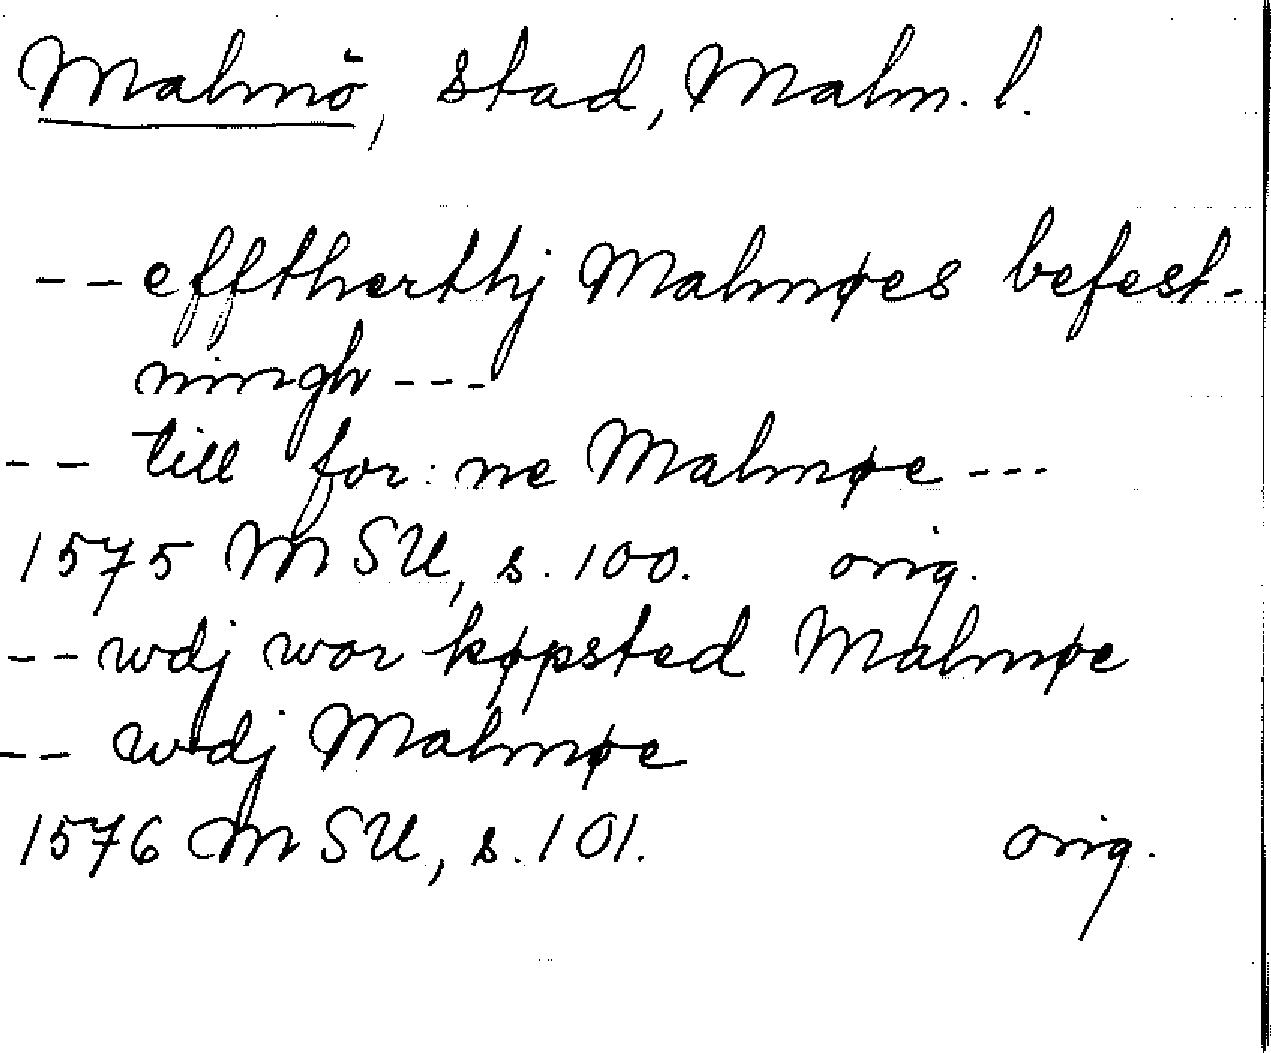 Malmö, stad, Malm. l.
-- efftherthj Malmøes befest-
ningh ---
-- till for: ne Malmøe ---
1575 MSU, s. 100. orig.
-- wdj wor køpsted Malmøe
-- wdj Malmøe
1576 MSU, s. 101. orig.